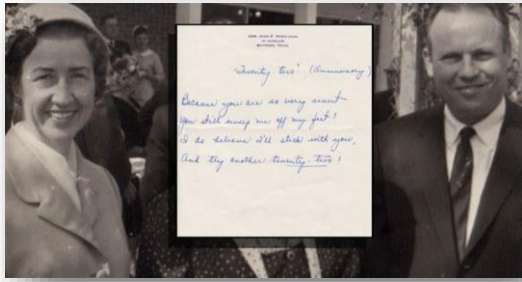 "Twenty two" (Anniversary)
Because you are so very sweet
You still sweep me off my feet!
I do believe I'll stick with you,
And try another twenty-two!